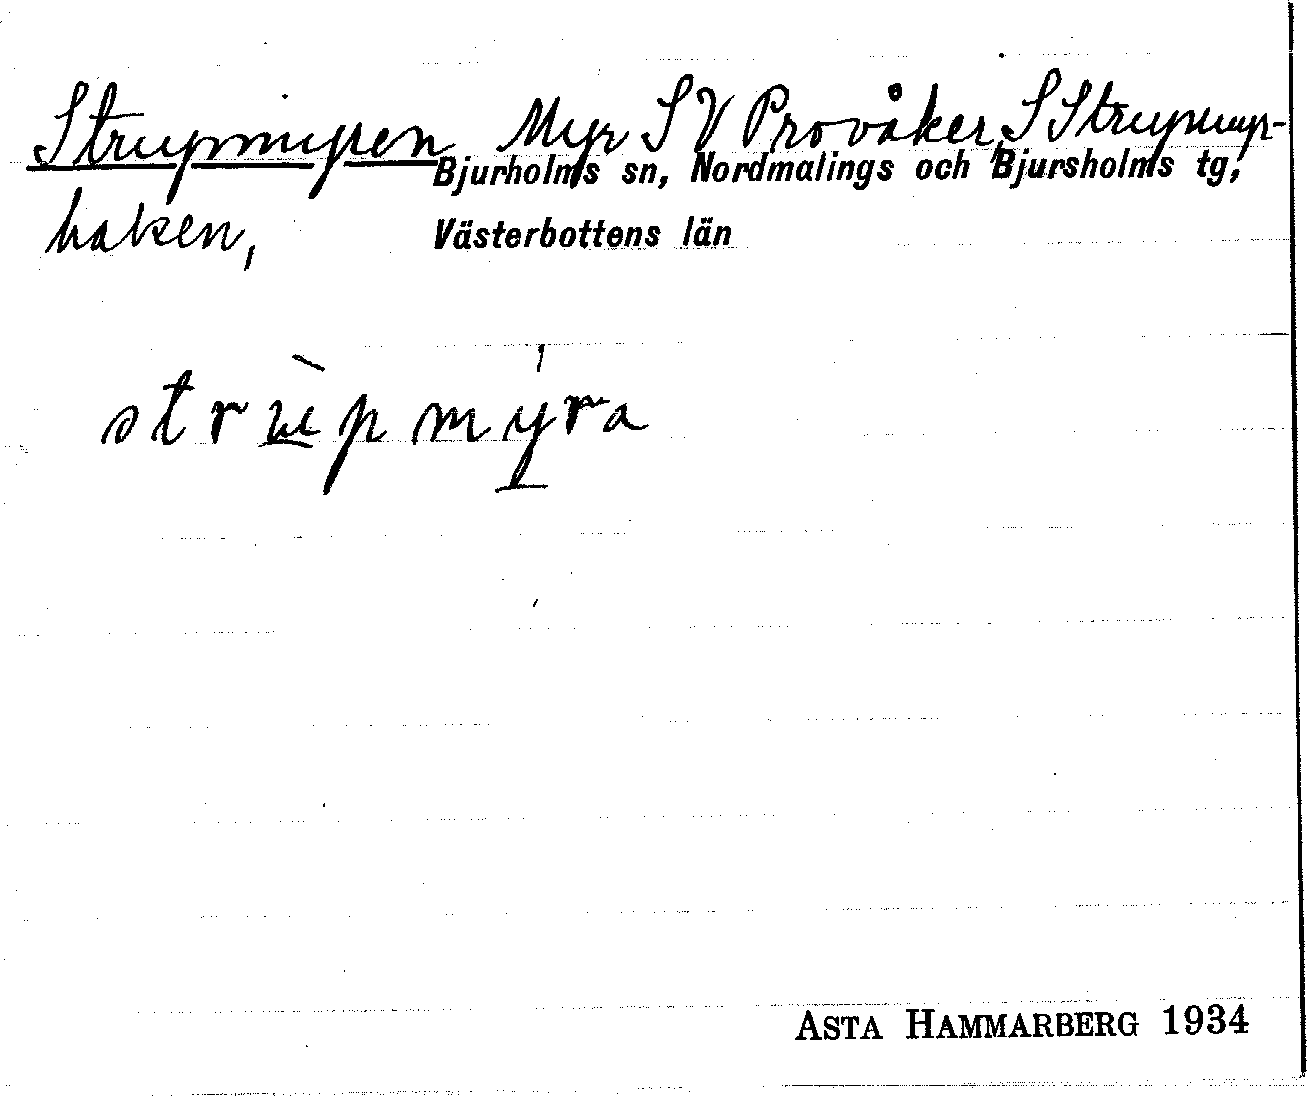 Strupmyren Myr SV Provåker, S Strupmyr-
Bjurholms sn, Nordmalings och Bjursholms tg,
haken, Västerbottens län
strùpmýra
ASTA HAMMARBERG 1934